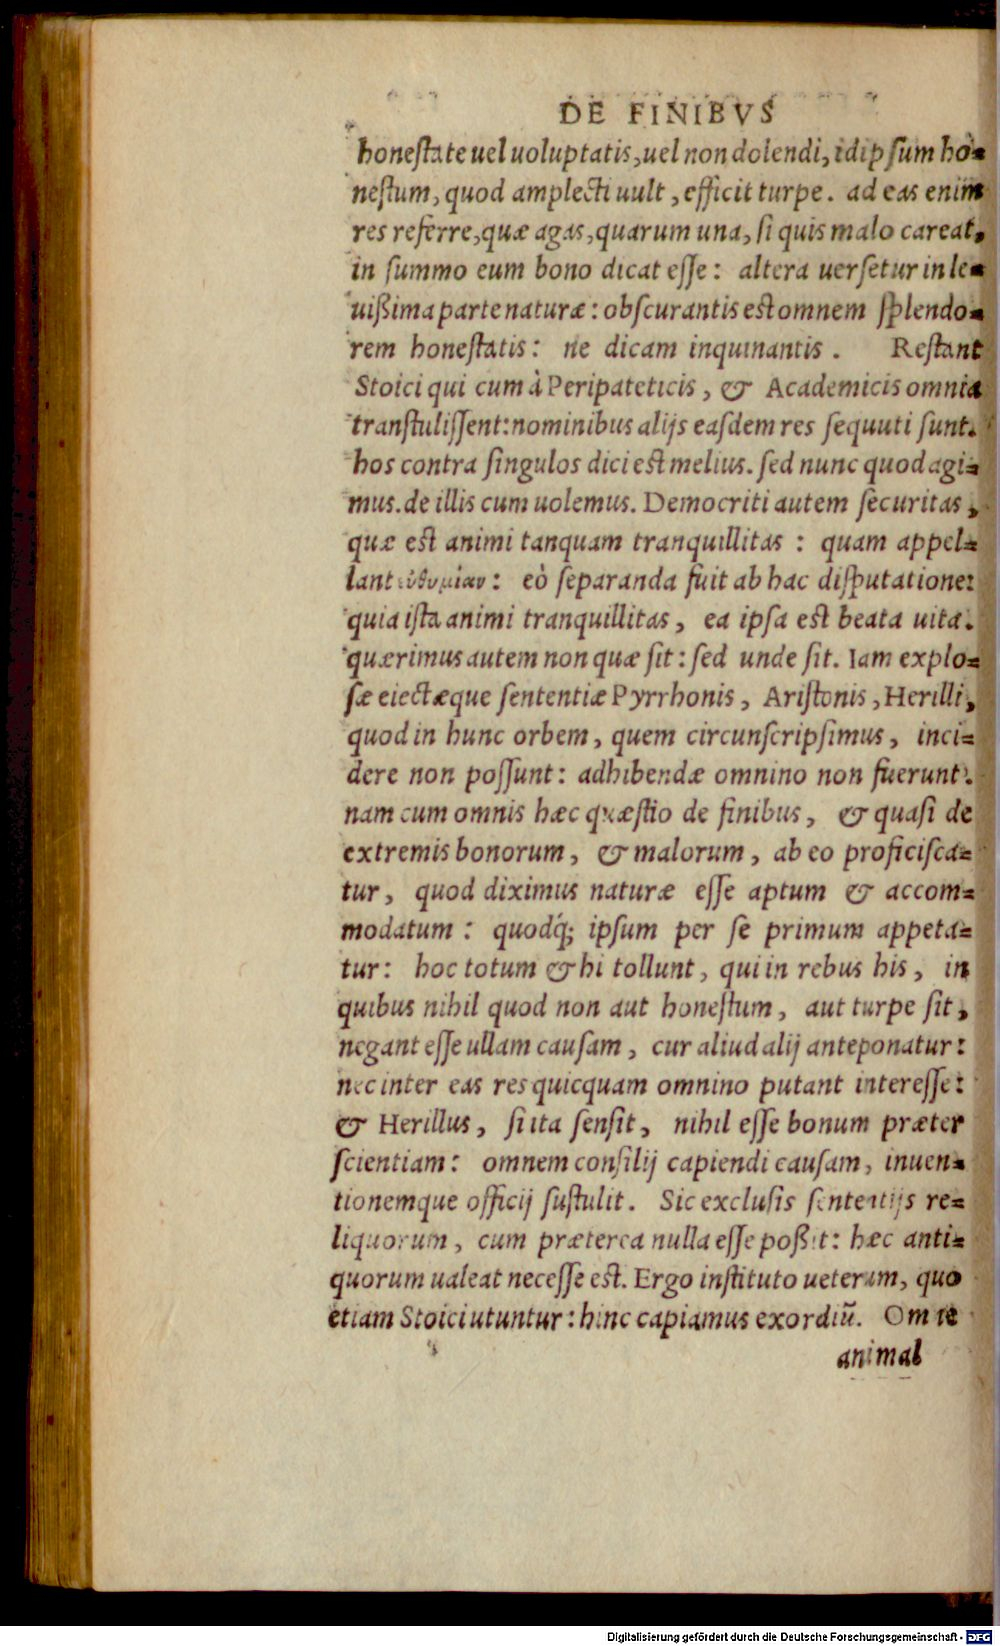 DE FINIBVS
honeſtate uel uoluptatis, uel non dolendi, id ipſum ho=
neſtum, quod amplecti uult, efficit turpe. ad eas enim
res referre, quæ agas, quarum una, ſi quis malo careat,
in ſummo eum bono dicat eſſe: altera uerſetur in le=
uißima parte naturæ: obſcurantis est omnem ſplendo=
rem honeſtatis: ne dicam inquinantis. Reſtant
Stoici qui cum à Peripateticis, & Academicis omnia
tranſtuliſſent: nominibus alijs eaſdem res ſequuti ſunt.
hos contra ſingulos dici est melius. ſed nunc quod agi=
mus. de illis cum uolemus. Democriti autem ſecuritas,
quæ est animi tanquam tranquillitas: quam appel=
lant εὐθυμίαν: eò ſeparanda fuit ab hac diſputatione:
quia iſta animi tranquillitas, ea ipſa est beata uita.
quærimus autem non quæ ſit: ſed unde ſit. Iam explo=
ſæ eiectæque ſententiæ Pyrrhonis, Ariſtonis, Herilli,
quod in hunc orbem, quem circunſcripſimus, inci=
dere non poſſunt: adhibendæ omnino non fuerunt.
nam cum omnis hæc quæſtio de finibus, & quaſi de
extremis bonorum, & malorum, ab eo proficiſca=
tur, quod diximus naturæ eſſe aptum & accom=
modatum: quodq́; ipſum per ſe primum appeta=
tur: hoc totum & hi tollunt, qui in rebus his, in
quibus nihil quod non aut honeſtum, aut turpe ſit,
negant eſſe ullam cauſam, cur aliud alij anteponatur:
nec inter eas res quicquam omnino putant intereſſe:
& Herillus, ſi ita ſenſit, nihil eſſe bonum præter
ſcientiam: omnem conſilij capiendi cauſam, inuen=
tionemque officij ſuſtulit. Sic excluſis ſententijs re=
liquorum, cum præterea nulla eſſe poßit: hæc anti=
quorum ualeat neceſſe est. Ergo inſtituto ueterum, quo
etiam Stoici utuntur: hinc capiamus exordiũ. Omne
animal
Digitalisierung gefördert durch die Deutsche Forschungsgemeinschaft - DFG